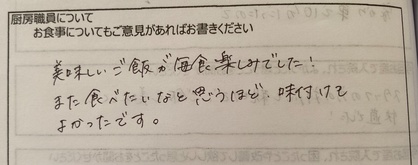 厨房職員について
お食事についてもご意見があればお書きください
美味しいご飯が毎食楽しみでした!
また食べたいなと思うほど味付けて
よかったです。